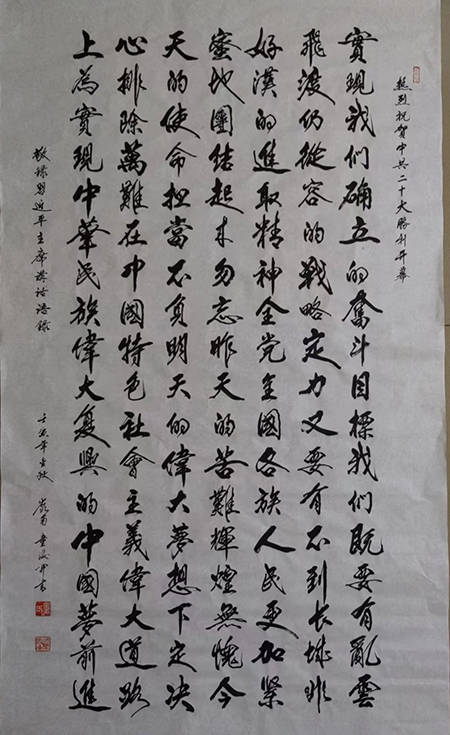 熱烈祝賀中共二十大勝利开幕
實現我们确立的奮斗目標我们既要有亂雲
飛渡仍從容的戰略定力又要有不到长城非
好漢的進取精神全党全國各族人民更加緊
蜜地團结起来勿忘昨天的苦難輝煌無愧今
天的使命担當不負明天的偉大夢想下定决
心排除萬難在中國特色社會主義偉大道路
上為實現中華民族偉大复興的中國夢前進
敬録習近平主席講话语録